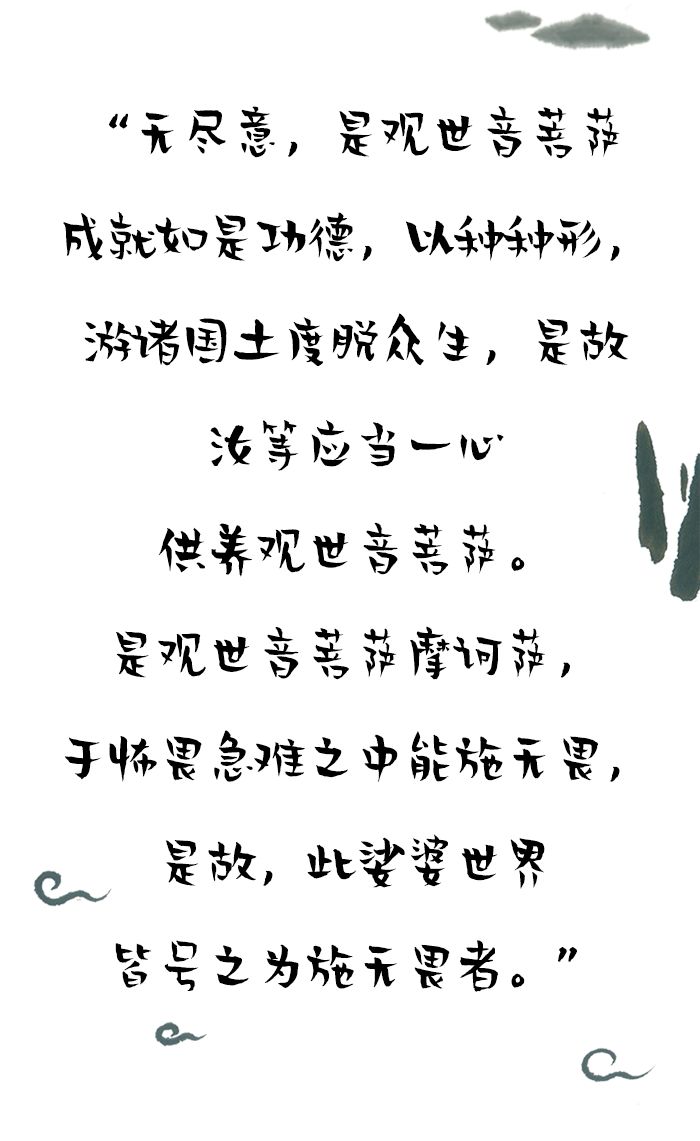 “无尽意，是观世音菩萨
成就如是功德，以种种形，
游诸国土度脱众生，是故
汝等应当一心
供养观世音菩萨。
是观世音菩萨摩诃萨，
于怖畏急难之中能施无畏，
是故，此娑婆世界
皆号之为施无畏者。”